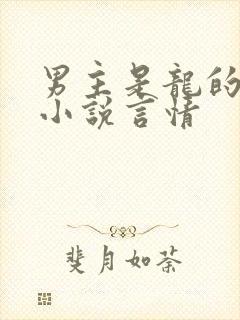 男主是龍的
小說言情
斐月如荼